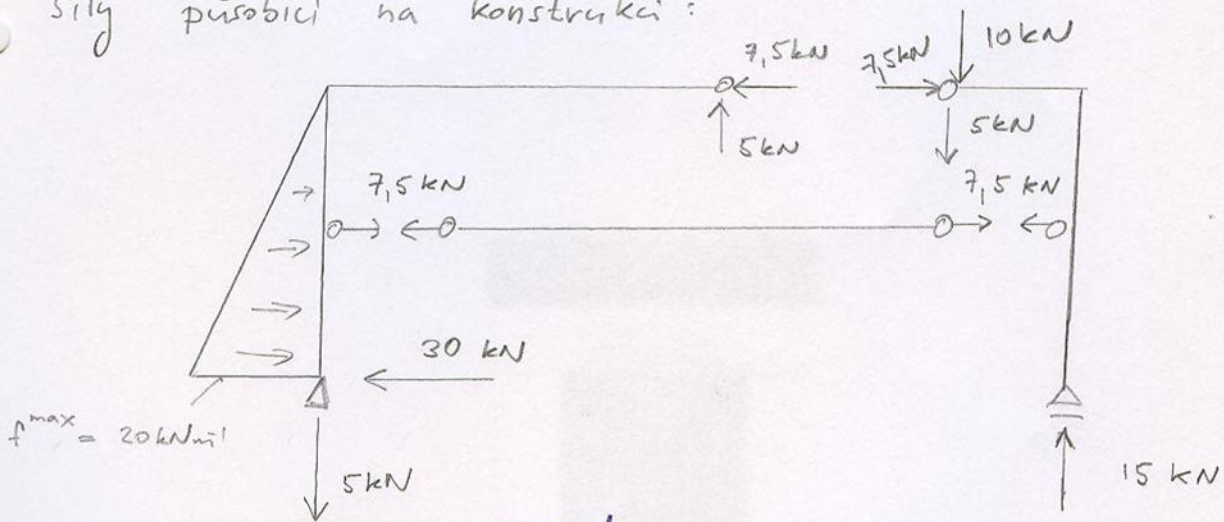 síly působící na konstrukci:
10 kN
7,5 kN 7,5 kN
5 kN 5 kN
7,5 kN 7,5 kN
30 kN
f^max = 20 kNm^-1
5 kN 15 kN